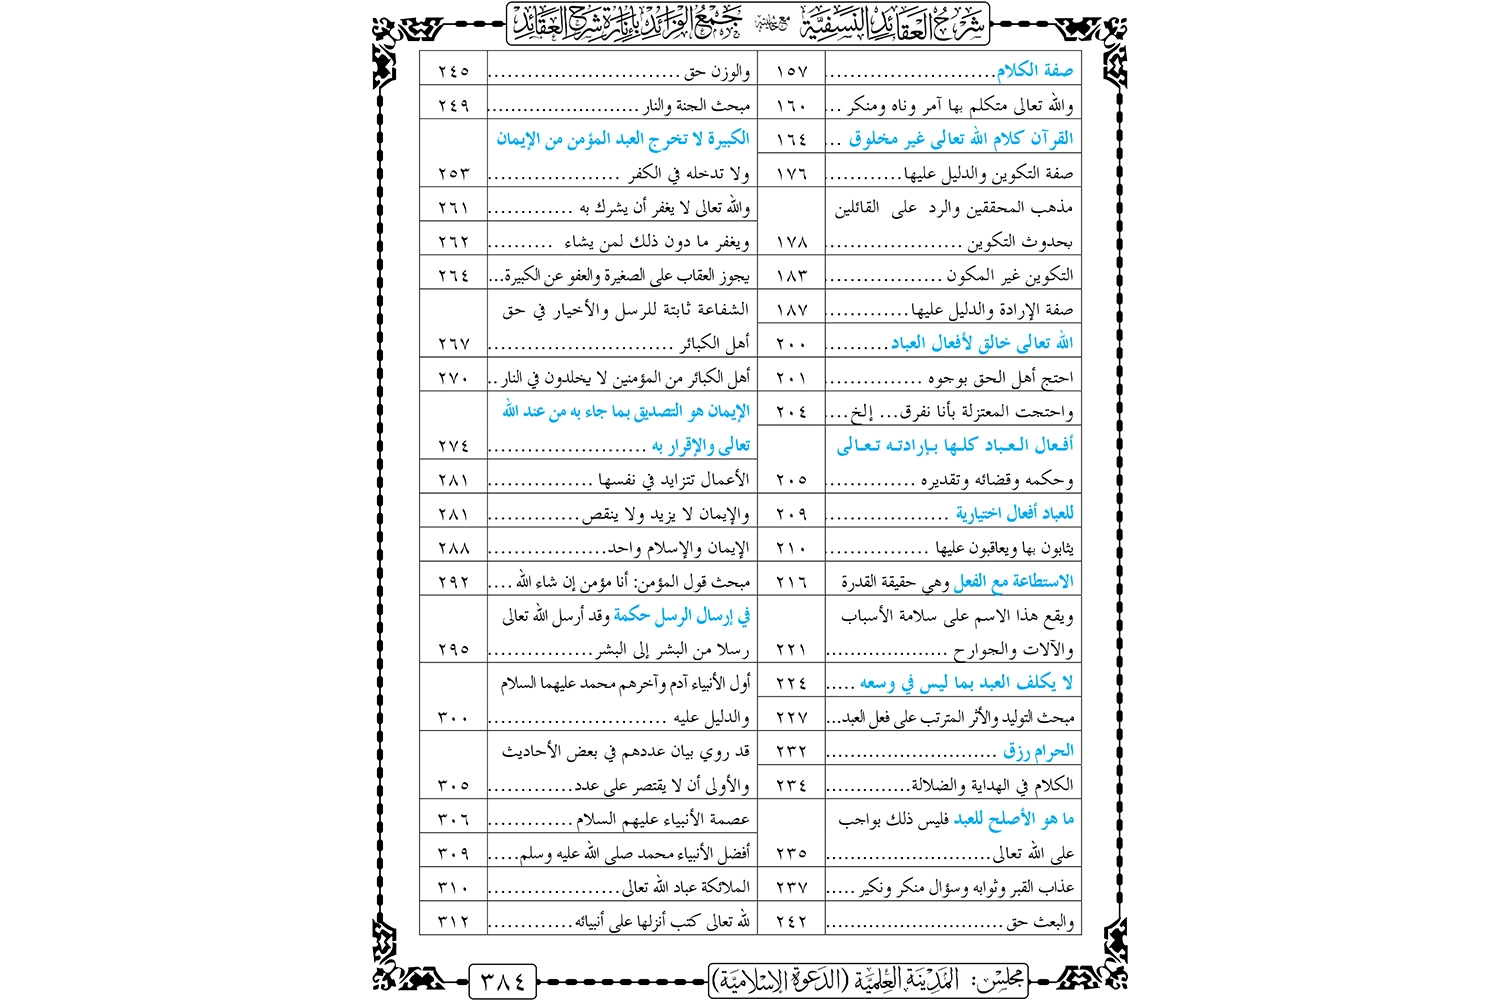 شرح العقائد النسفية مع حاشية جمع الفرائد بإنارة شرح العقائد
صفة الكلام.......................... ١٥٧
والله تعالى متكلم بها آمر وناه ومنكر ... ١٦٠
القرآن كلام الله تعالى غير مخلوق ... ١٦٤
صفة التكوين والدليل عليها............ ١٧٦
مذهب المحققين والرد على القائلين
بحدوث التكوين ..................... ١٧٨
التكوين غير المكون .................. ١٨٣
صفة الإرادة والدليل عليها............. ١٨٧
الله تعالى خالق لأفعال العباد.......... ٢٠٠
احتج أهل الحق بوجوه ............... ٢٠١
واحتجت المعتزلة بأنا نفرق... إلخ.... ٢٠٤
أفعال العباد كلها بإرادته تعالى
وحكمه وقضائه وتقديره .............. ٢٠٥
للعباد أفعال اختيارية ................... ٢٠٩
يثابون بها ويعاقبون عليها ................ ٢١٠
الاستطاعة مع الفعل وهي حقيقة القدرة ٢١٦
ويقع هذا الاسم على سلامة الأسباب
والآلات والجوارح ................... ٢٢١
لا يكلف العبد بما ليس في وسعه ..... ٢٢٤
مبحث التوليد والأثر المترتب على فعل العبد... ٢٢٧
الحرام رزق .......................... ٢٣٢
الكلام في الهداية والضلالة............. ٢٣٤
ما هو الأصلح للعبد فليس ذلك بواجب
على الله تعالى......................... ٢٣٥
عذاب القبر وثوابه وسؤال منكر ونكير ..... ٢٣٧
والبعث حق ........................... ٢٤٢
والوزن حق ............................. ٢٤٥
مبحث الجنة والنار ......................... ٢٤٩
الكبيرة لا تخرج العبد المؤمن من الإيمان
ولا تدخله في الكفر .................... ٢٥٣
والله تعالى لا يغفر أن يشرك به ............. ٢٦١
ويغفر ما دون ذلك لمن يشاء .......... ٢٦٢
يجوز العقاب على الصغيرة والعفو عن الكبيرة... ٢٦٤
الشفاعة ثابتة للرسل والأخيار في حق
أهل الكبائر ............................ ٢٦٧
أهل الكبائر من المؤمنين لا يخلدون في النار .. ٢٧٠
الإيمان هو التصديق بما جاء به من عند الله
تعالى والإقرار به ........................ ٢٧٤
الأعمال تتزايد في نفسها ................ ٢٨١
والإيمان لا يزيد ولا ينقص.............. ٢٨١
الإيمان والإسلام واحد.................. ٢٨٨
مبحث قول المؤمن: أنا مؤمن إن شاء الله .... ٢٩٢
في إرسال الرسل حكمة وقد أرسل الله تعالى
رسلا من البشر إلى البشر................ ٢٩٥
أول الأنبياء آدم وآخرهم محمد عليهما السلام
والدليل عليه ........................... ٣٠٠
قد روي بيان عددهم في بعض الأحاديث
والأولى أن لا يقتصر على عدد............. ٣٠٥
عصمة الأنبياء عليهم السلام............. ٣٠٦
أفضل الأنبياء محمد صلى الله عليه وسلم..... ٣٠٩
الملائكة عباد الله تعالى.................... ٣١٠
لله تعالى كتب أنزلها على أنبيائه............. ٣١٢
مجلس: المدينة العلمية (الدعوة الإسلامية) ٣٨٤